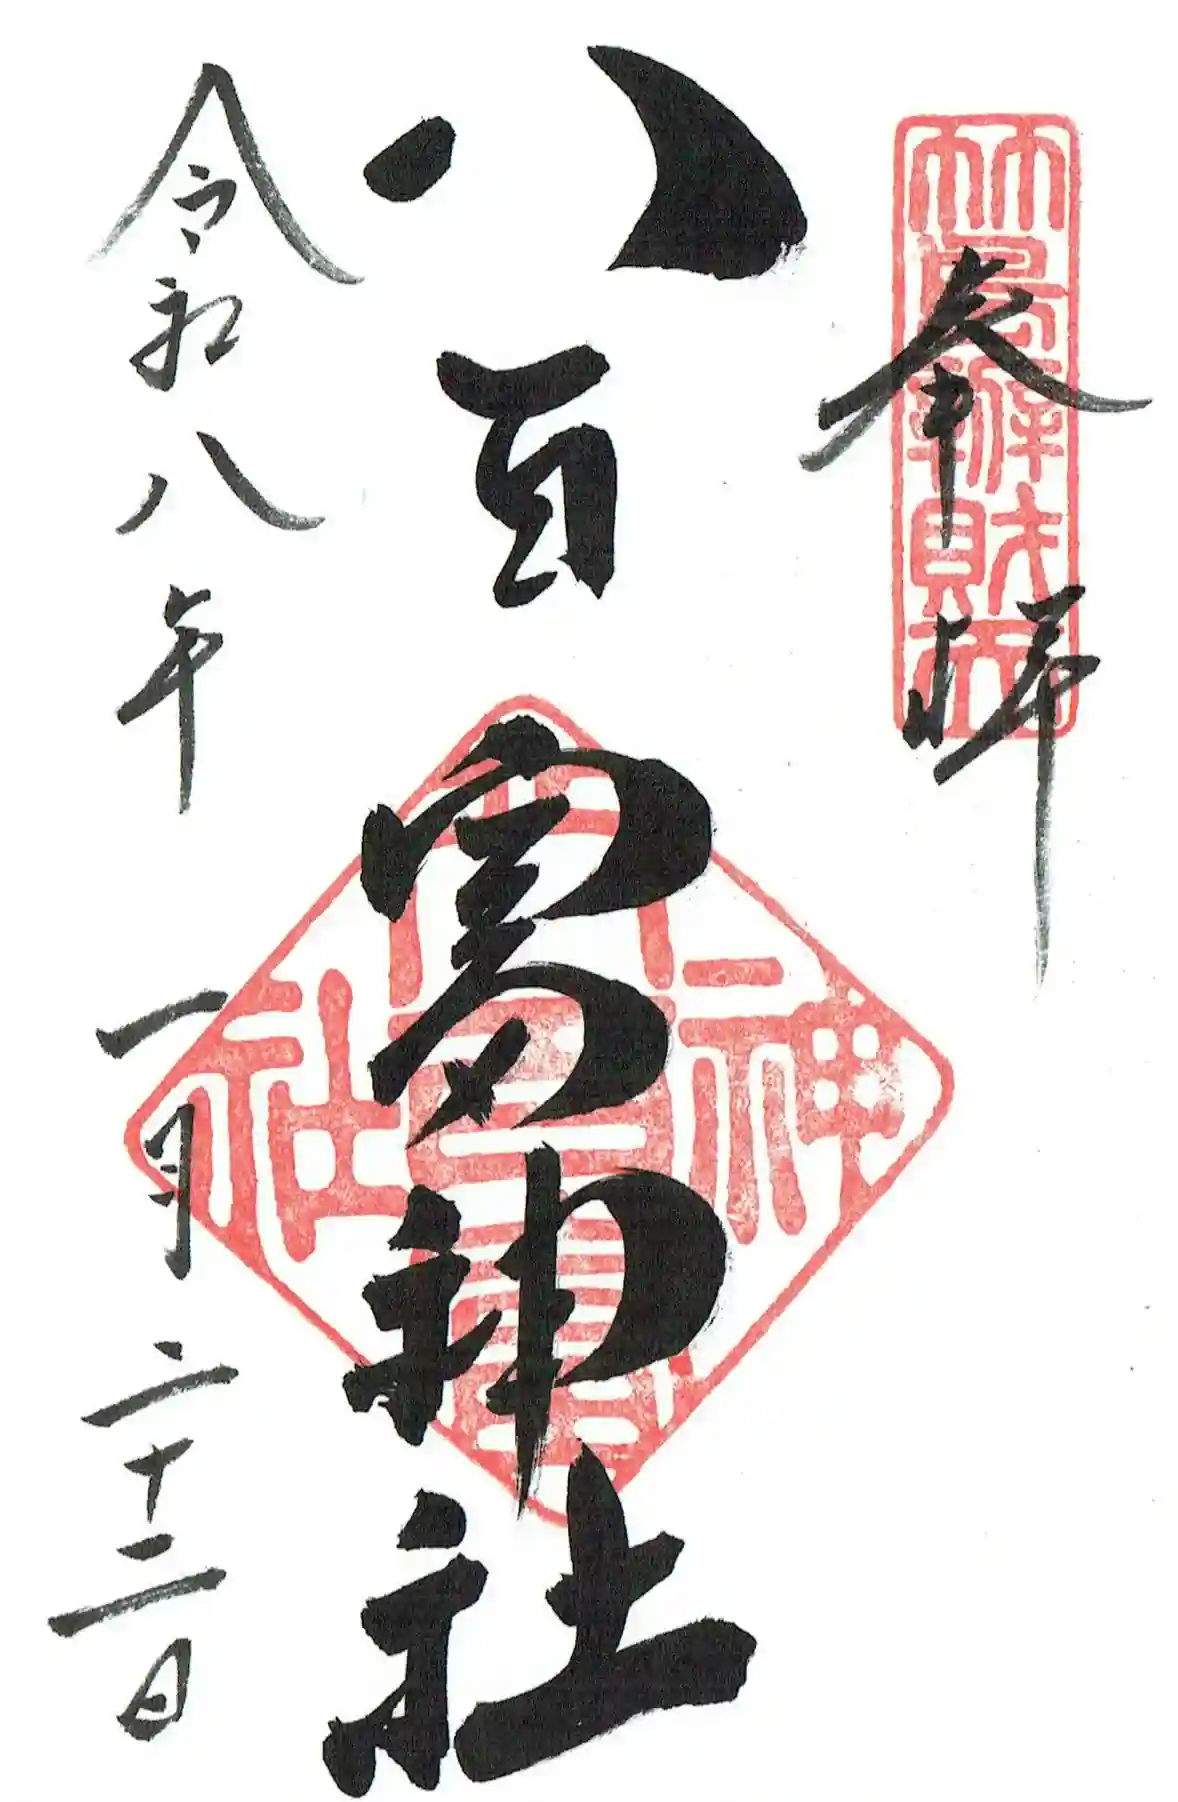 奉拝
竹島辨財天
八百富神社
八百富神社
令和八年一月二十二日